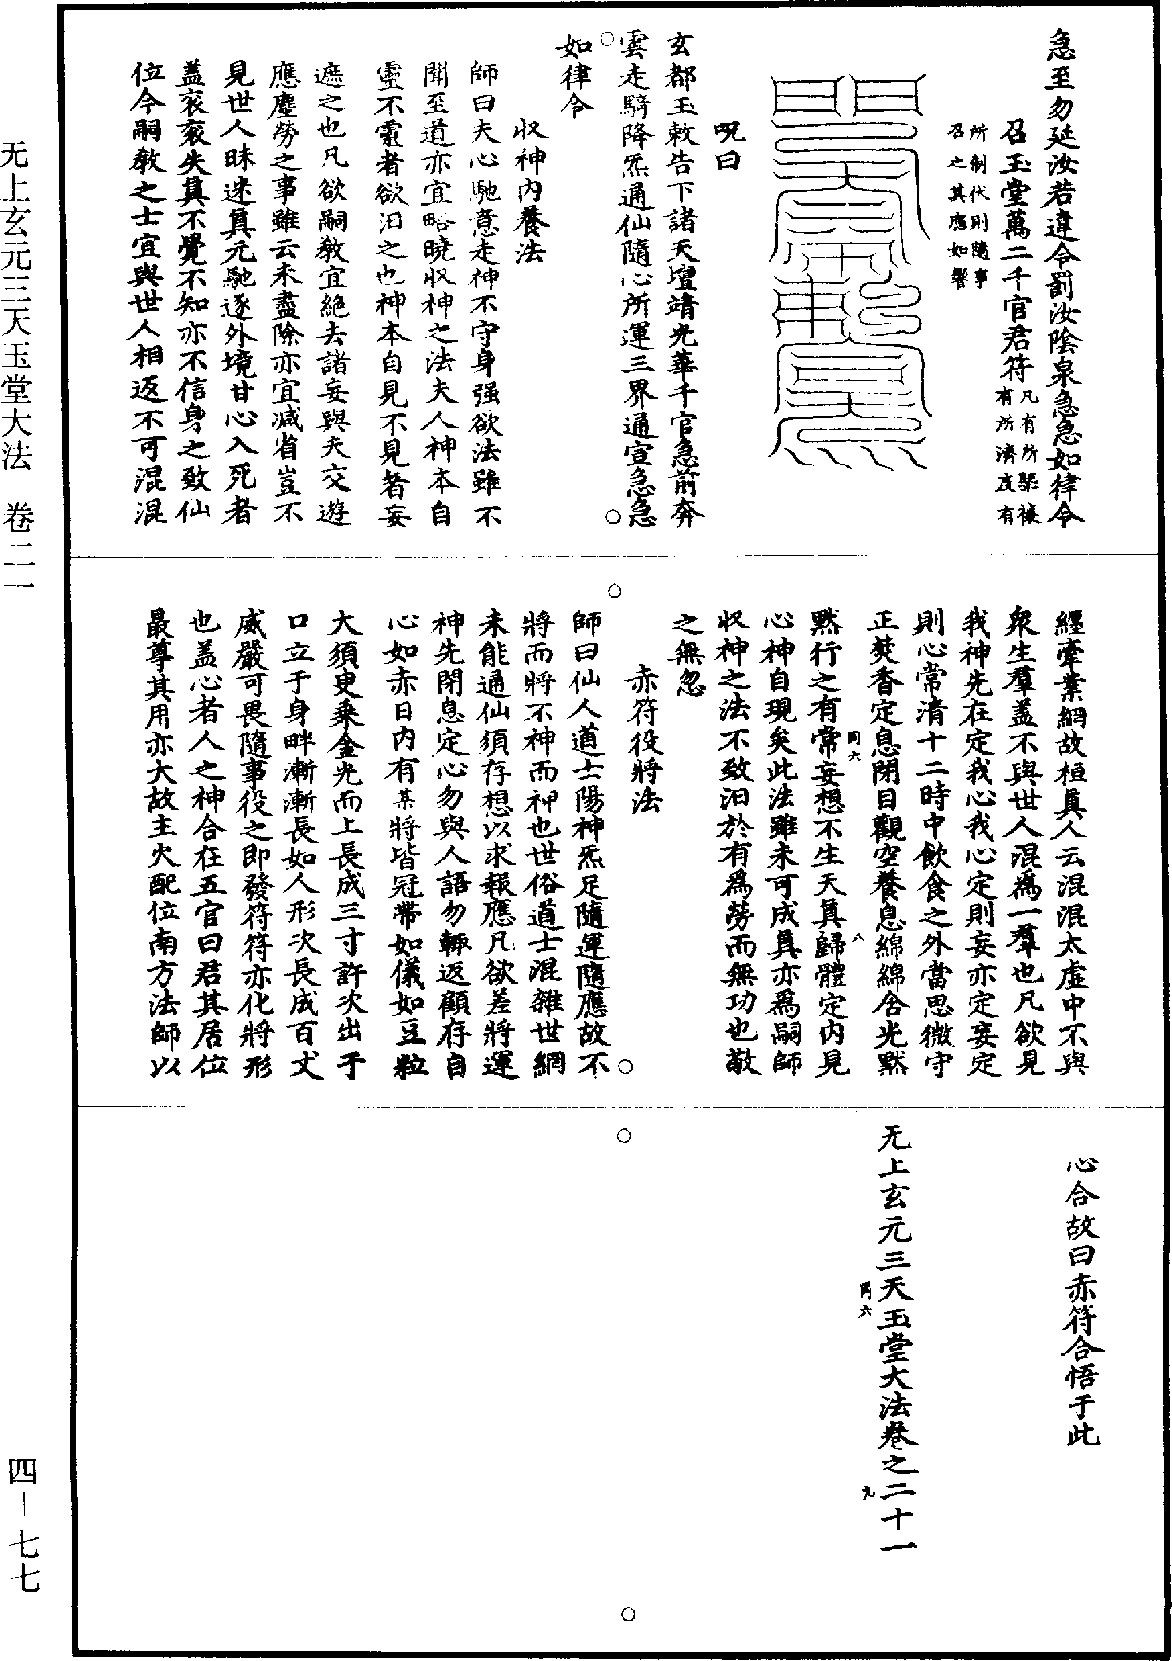 急至勿延汝若違令罰汝陰泉急急如律令
召玉堂萬二千官君符凡有所驅禳有所濟度有
所制代則隨事召之其應如響
呪曰
玄都玉敕告下諸天壇靖光華千官急前奔
雲走騎降炁通仙隨心所運三界通宣急急
如律令
收神內養法
師曰夫心馳意走神不守身强欲法雖不
聞至道亦宜略曉收神之法夫人神本自
靈不靈者欲汩之也神本自見不見者妄
遮之也凡欲嗣教宜絕去諸妄與夫交遊
應塵勞之事雖云未盡除亦宜減省豈不
見世人昧迷真元馳逐外境甘心入死者
蓋衮衮失真不覺不知亦不信身之致仙
位今嗣教之士宜與世人相返不可混混
經牽業網故桓真人云混混太虛中不與
衆生羣蓋不與世人混為一羣也凡欲見
我神先在定我心我心定則妄亦定妄定
則心常清十二時中飲食之外當思微守
正焚香定息閉目觀空養息綿綿含光默
默行之有常妄想不生天真歸體定內見
心神自現矣此法雖未可成真亦為嗣師
收神之法不致汩於有為勞而無功也敬
之無忽
赤符役將法
師曰仙人道士陽神炁足隨運隨應故不
將而將不神而神也世俗道士混雜世網
未能通仙須存想以求報應凡欲差將運
神先閉息定心勿與人語勿輒返顧存自
心如赤日內有某將皆冠帶如儀如豆粒
大須臾乘金光而上長成三寸許次出于
口立于身畔漸漸長如人形次長成百丈
威嚴可畏隨事役之即發符符亦化將形
也蓋心者人之神合在五官曰君其居位
最尊其用亦大故主火配位南方法師以
心合故曰赤符合悟于此
无上玄元三天玉堂大法卷之二十一
同六
八
同六
九
无上玄元三天玉堂大法 卷二一
四—七七